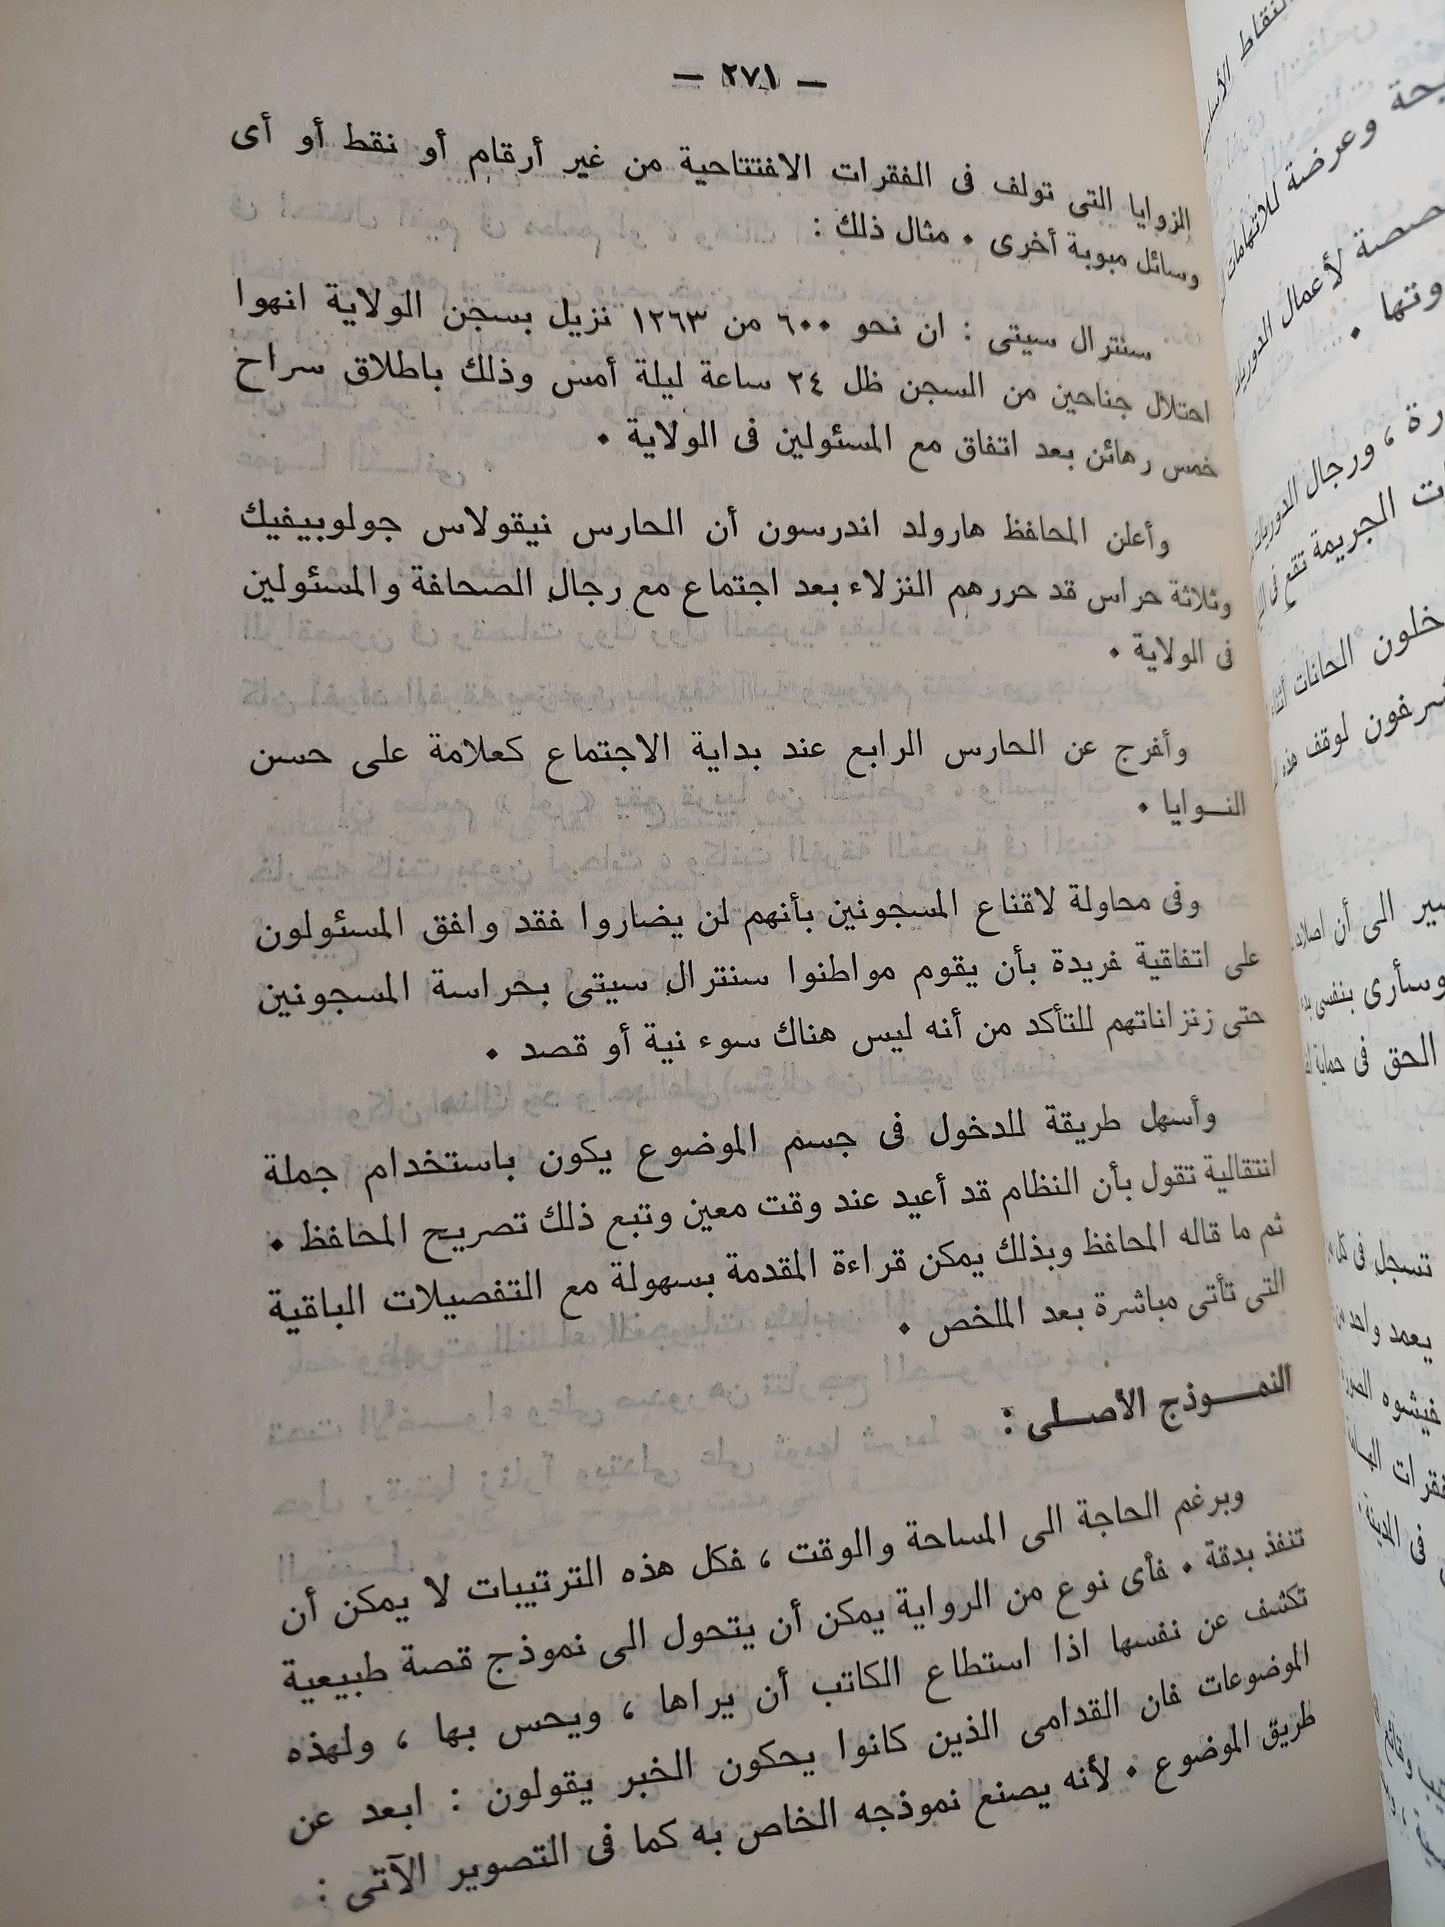 — ٢٧١ —
الزوايا التى تولف فى الفقرات الافتتاحية من غير أرقام أو نقط أو أى
وسائل مبوبة أخرى • مثال ذلك :
سنترال سيتى : ان نحو ٦٠٠ من ١٢٦٣ نزيل بسجن الولاية انهوا
احتلال جناحين من السجن ظل ٢٤ ساعة ليلة أمس وذلك باطلاق سراح
خمس رهائن بعد اتفاق مع المسئولين فى الولاية •
وأعلن المحافظ هارولد اندرسون أن الحارس نيقولاس جولوبيفيك
وثلاثة حراس قد حررهم النزلاء بعد اجتماع مع رجال الصحافة والمسئولين
فى الولاية •
وأفرج عن الحارس الرابع عند بداية الاجتماع كعلامة على حسن
النــوايا •
وفى محاولة لاقناع المسجونين بأنهم لن يضاروا فقد وافق المسئولون
على اتفاقية فريدة بأن يقوم مواطنوا سنترال سيتى بحراسة المسجونين
حتى زنزاناتهم للتأكد من أنه ليس هناك سوء نية أو قصد •
وأسهل طريقة للدخول فى جسم الموضوع يكون باستخدام جملة
انتقالية تقول بأن النظام قد أعيد عند وقت معين وتبع ذلك تصريح المحافظ •
ثم ما قاله المحافظ وبذلك يمكن قراءة المقدمة بسهولة مع التفصيلات الباقية
التى تأتى مباشرة بعد الملخص •
النمــوذج الأصــلى :
وبرغم الحاجة الى المساحة والوقت ، فكل هذه الترتيبات لا يمكن أن
تنفذ بدقة • فأى نوع من الرواية يمكن أن يتحول الى نموذج قصة طبيعية
تكشف عن نفسها اذا استطاع الكاتب أن يراها ، ويحس بها ، ولهذه
الموضوعات فان القدامى الذين كانوا يحكون الخبر يقولون : ابعد عن
طريق الموضوع • لأنه يصنع نموذجه الخاص به كما فى التصوير الآتى :
وعرضة للاتهامات
لأعمال
وتها •
، ورجال الدوريات
الجريمة تقع فى
الحانات
لوقف هذه
الى أن
وسأرى بنفسى
الحق فى حماية
تسجل فى كل
يعمد واحد
فيشوه الصورة
فى المدينة